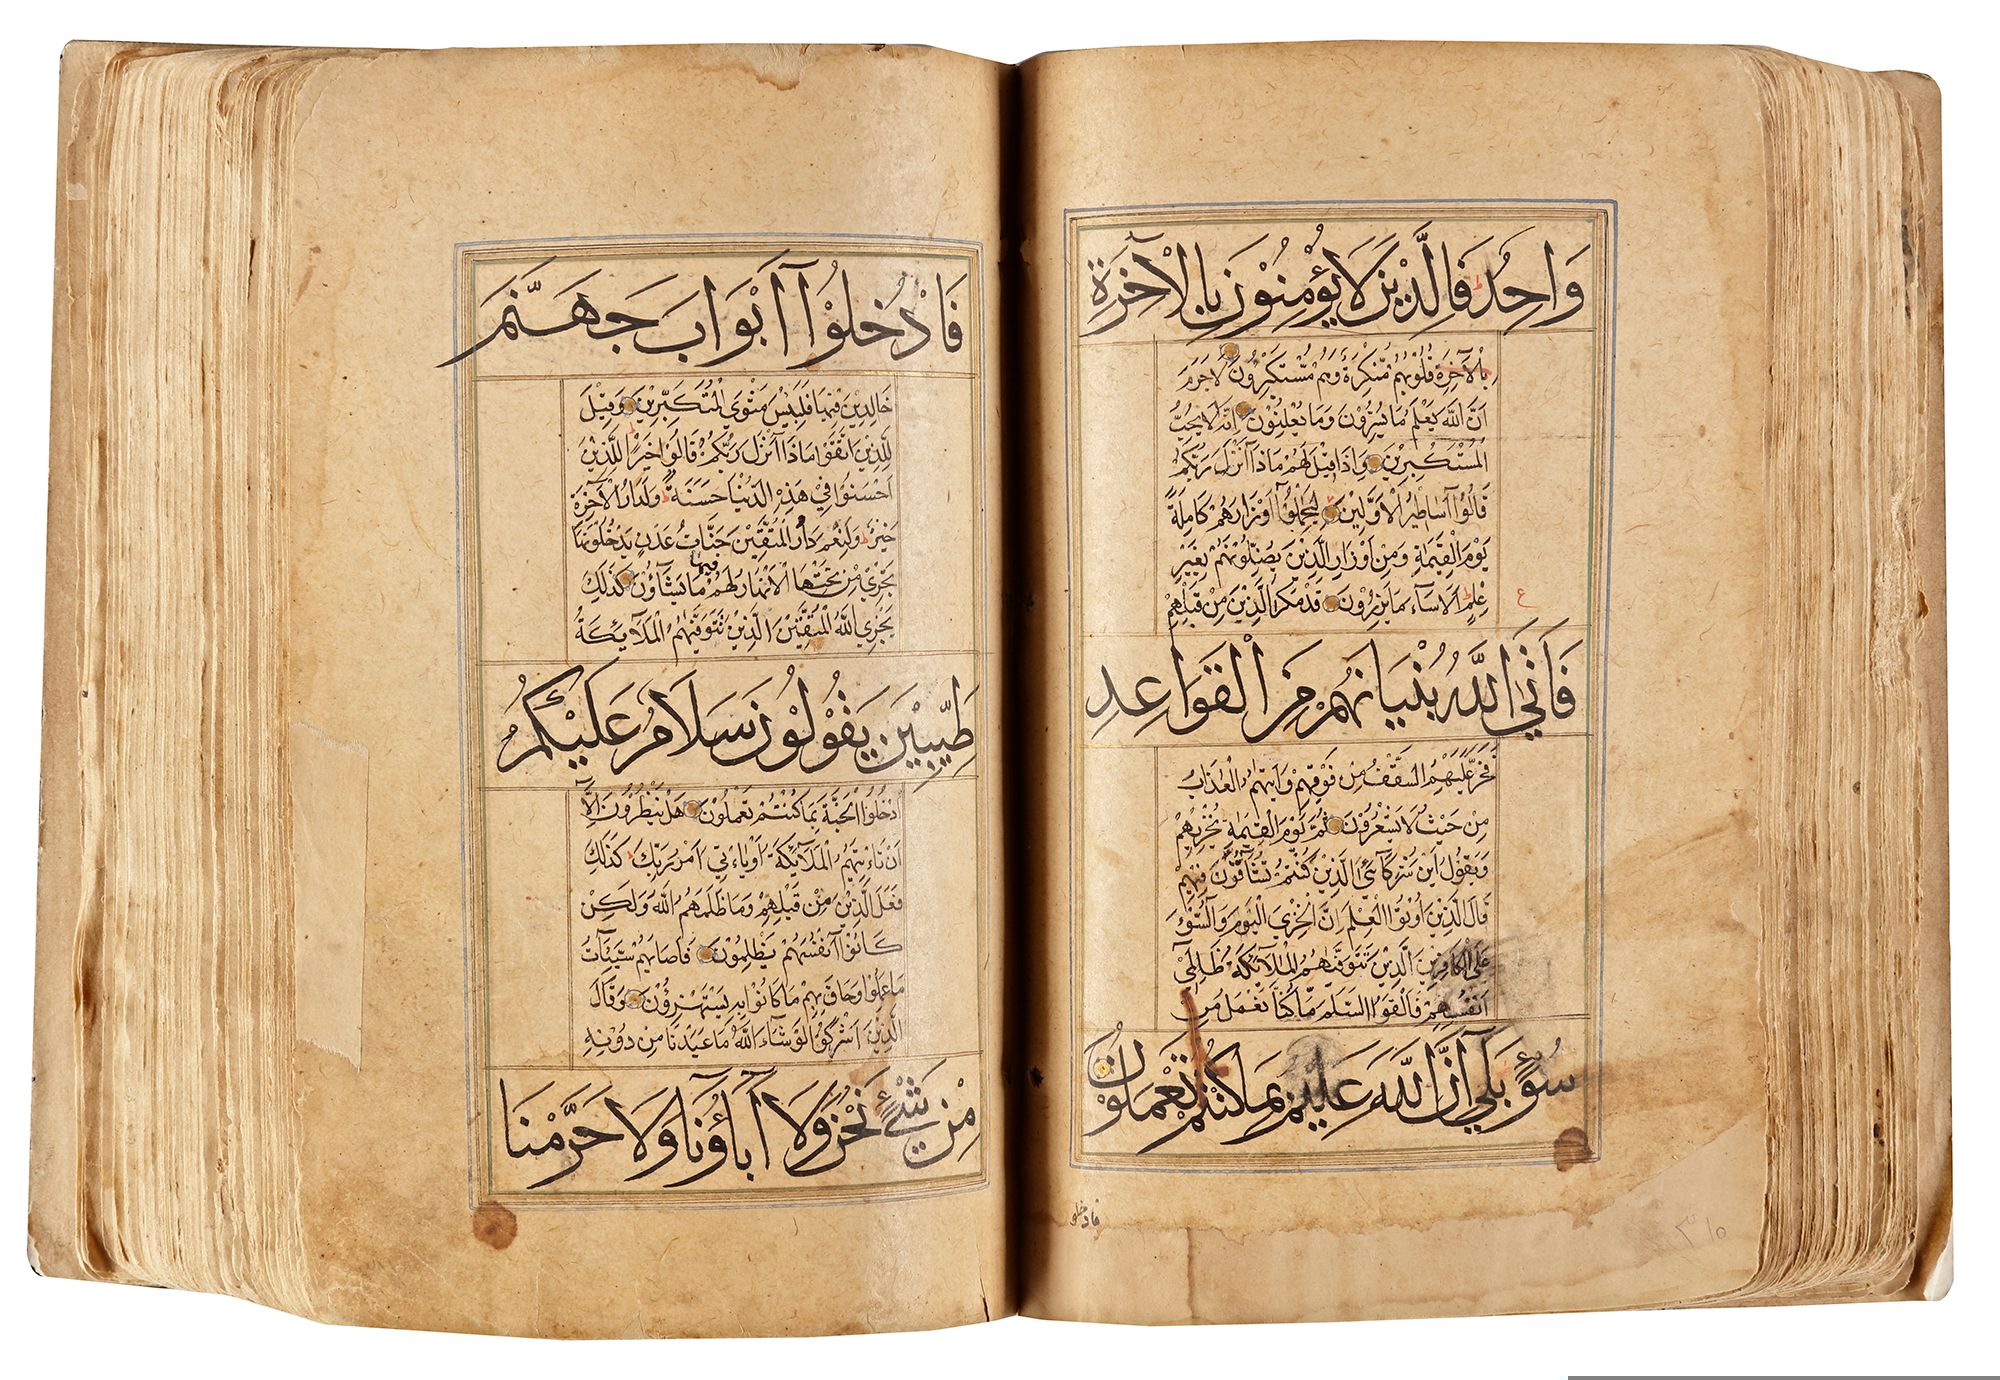 وَاحِدٌ فَالَّذِيْنَ لَا يُؤْمِنُوْنَ بِالْآخِرَةِ
بِالآخِرَةِ قُلُوْبُهُمْ مُّنْكِرَةٌ وَهُمْ مُّسْتَكْبِرُوْنَ لَا جَرَمَ
اَنَّ اللّٰهَ يَعْلَمُ مَا يُسِرُّوْنَ وَمَا يُعْلِنُوْنَ اِنَّهُ لَا يُحِبُّ
الْمُسْتَكْبِرِيْنَ وَاِذَا قِيْلَ لَهُمْ مَاذَا اَنْزَلَ رَبُّكُمْ
قَالُوْا اَسَاطِيْرُ الْاَوَّلِيْنَ لِيَحْمِلُوْا اَوْزَارَهُمْ كَامِلَةً
يَوْمَ الْقِيٰمَةِ وَمِنْ اَوْزَارِ الَّذِيْنَ يُضِلُّوْنَهُمْ بِغَيْرِ
عِلْمٍ اَلَا سَآءَ مَا يَزِرُوْنَ قَدْ مَكَرَ الَّذِيْنَ مِنْ قَبْلِهِمْ
ع
فَاَتَى اللّٰهُ بُنْيَانَهُمْ مِنَ الْقَوَاعِدِ
فَخَرَّ عَلَيْهِمُ السَّقْفُ مِنْ فَوْقِهِمْ وَاَتٰىهُمُ الْعَذَابُ
مِنْ حَيْثُ لَا يَشْعُرُوْنَ ثُمَّ يَوْمَ الْقِيٰمَةِ يُخْزِيْهِمْ
وَيَقُوْلُ اَيْنَ شُرَكَآئِيَ الَّذِيْنَ كُنْتُمْ تُشَآقُّوْنَ فِيْهِمْ
قَالَ الَّذِيْنَ اُوْتُوا الْعِلْمَ اِنَّ الْخِزْيَ الْيَوْمَ وَالسُّوْٓءَ
عَلَى الْكَافِرِيْنَ الَّذِيْنَ تَتَوَفّٰىهُمُ الْمَلَآئِكَةُ ظَالِمِيْٓ
اَنْفُسِهِمْ فَاَلْقَوُا السَّلَمَ مَا كُنَّا نَعْمَلُ مِنْ
سُوْٓءٍ بَلٰى اِنَّ اللّٰهَ عَلِيْمٌ بِمَا كُنْتُمْ تَعْمَلُوْنَ
فادخلوا
فَادْخُلُوْا اَبْوَابَ جَهَنَّمَ
خَالِدِيْنَ فِيْهَا فَلَبِئْسَ مَثْوَى الْمُتَكَبِّرِيْنَ وَقِيْلَ
لِلَّذِيْنَ اتَّقَوْا مَاذَا اَنْزَلَ رَبُّكُمْ قَالُوْا خَيْرًا لِلَّذِيْنَ
اَحْسَنُوْا فِيْ هٰذِهِ الدُّنْيَا حَسَنَةٌ وَلَدَارُ الْآخِرَةِ
خَيْرٌ وَلَنِعْمَ دَارُ الْمُتَّقِيْنَ جَنَّاتُ عَدْنٍ يَدْخُلُوْنَهَا
تَجْرِيْ مِنْ تَحْتِهَا الْاَنْهَارُ لَهُمْ فيها مَا يَشَآؤُنَ كَذٰلِكَ
يَجْزِي اللّٰهُ الْمُتَّقِيْنَ الَّذِيْنَ تَتَوَفّٰىهُمُ الْمَلَآئِكَةُ
طَيِّبِيْنَ يَقُوْلُوْنَ سَلَامٌ عَلَيْكُمُ
ادْخُلُوا الْجَنَّةَ بِمَا كُنْتُمْ تَعْمَلُوْنَ هَلْ يَنْظُرُوْنَ اِلَّآ
اَنْ تَاْتِيَهُمُ الْمَلَآئِكَةُ اَوْ يَاْتِيَ اَمْرُ رَبِّكَ كَذٰلِكَ
فَعَلَ الَّذِيْنَ مِنْ قَبْلِهِمْ وَمَا ظَلَمَهُمُ اللّٰهُ وَلٰكِنْ
كَانُوْا اَنْفُسَهُمْ يَظْلِمُوْنَ فَاَصَابَهُمْ سَيِّئَاتُ
مَا عَمِلُوْا وَحَاقَ بِهِمْ مَا كَانُوْا بِهٖ يَسْتَهْزِؤُنَ وَقَالَ
الَّذِيْنَ اَشْرَكُوْا لَوْ شَآءَ اللّٰهُ مَا عَبَدْنَا مِنْ دُوْنِهٖ
مِنْ شَيْءٍ نَحْنُ وَلَآ اٰبَآؤُنَا وَلَا حَرَّمْنَا